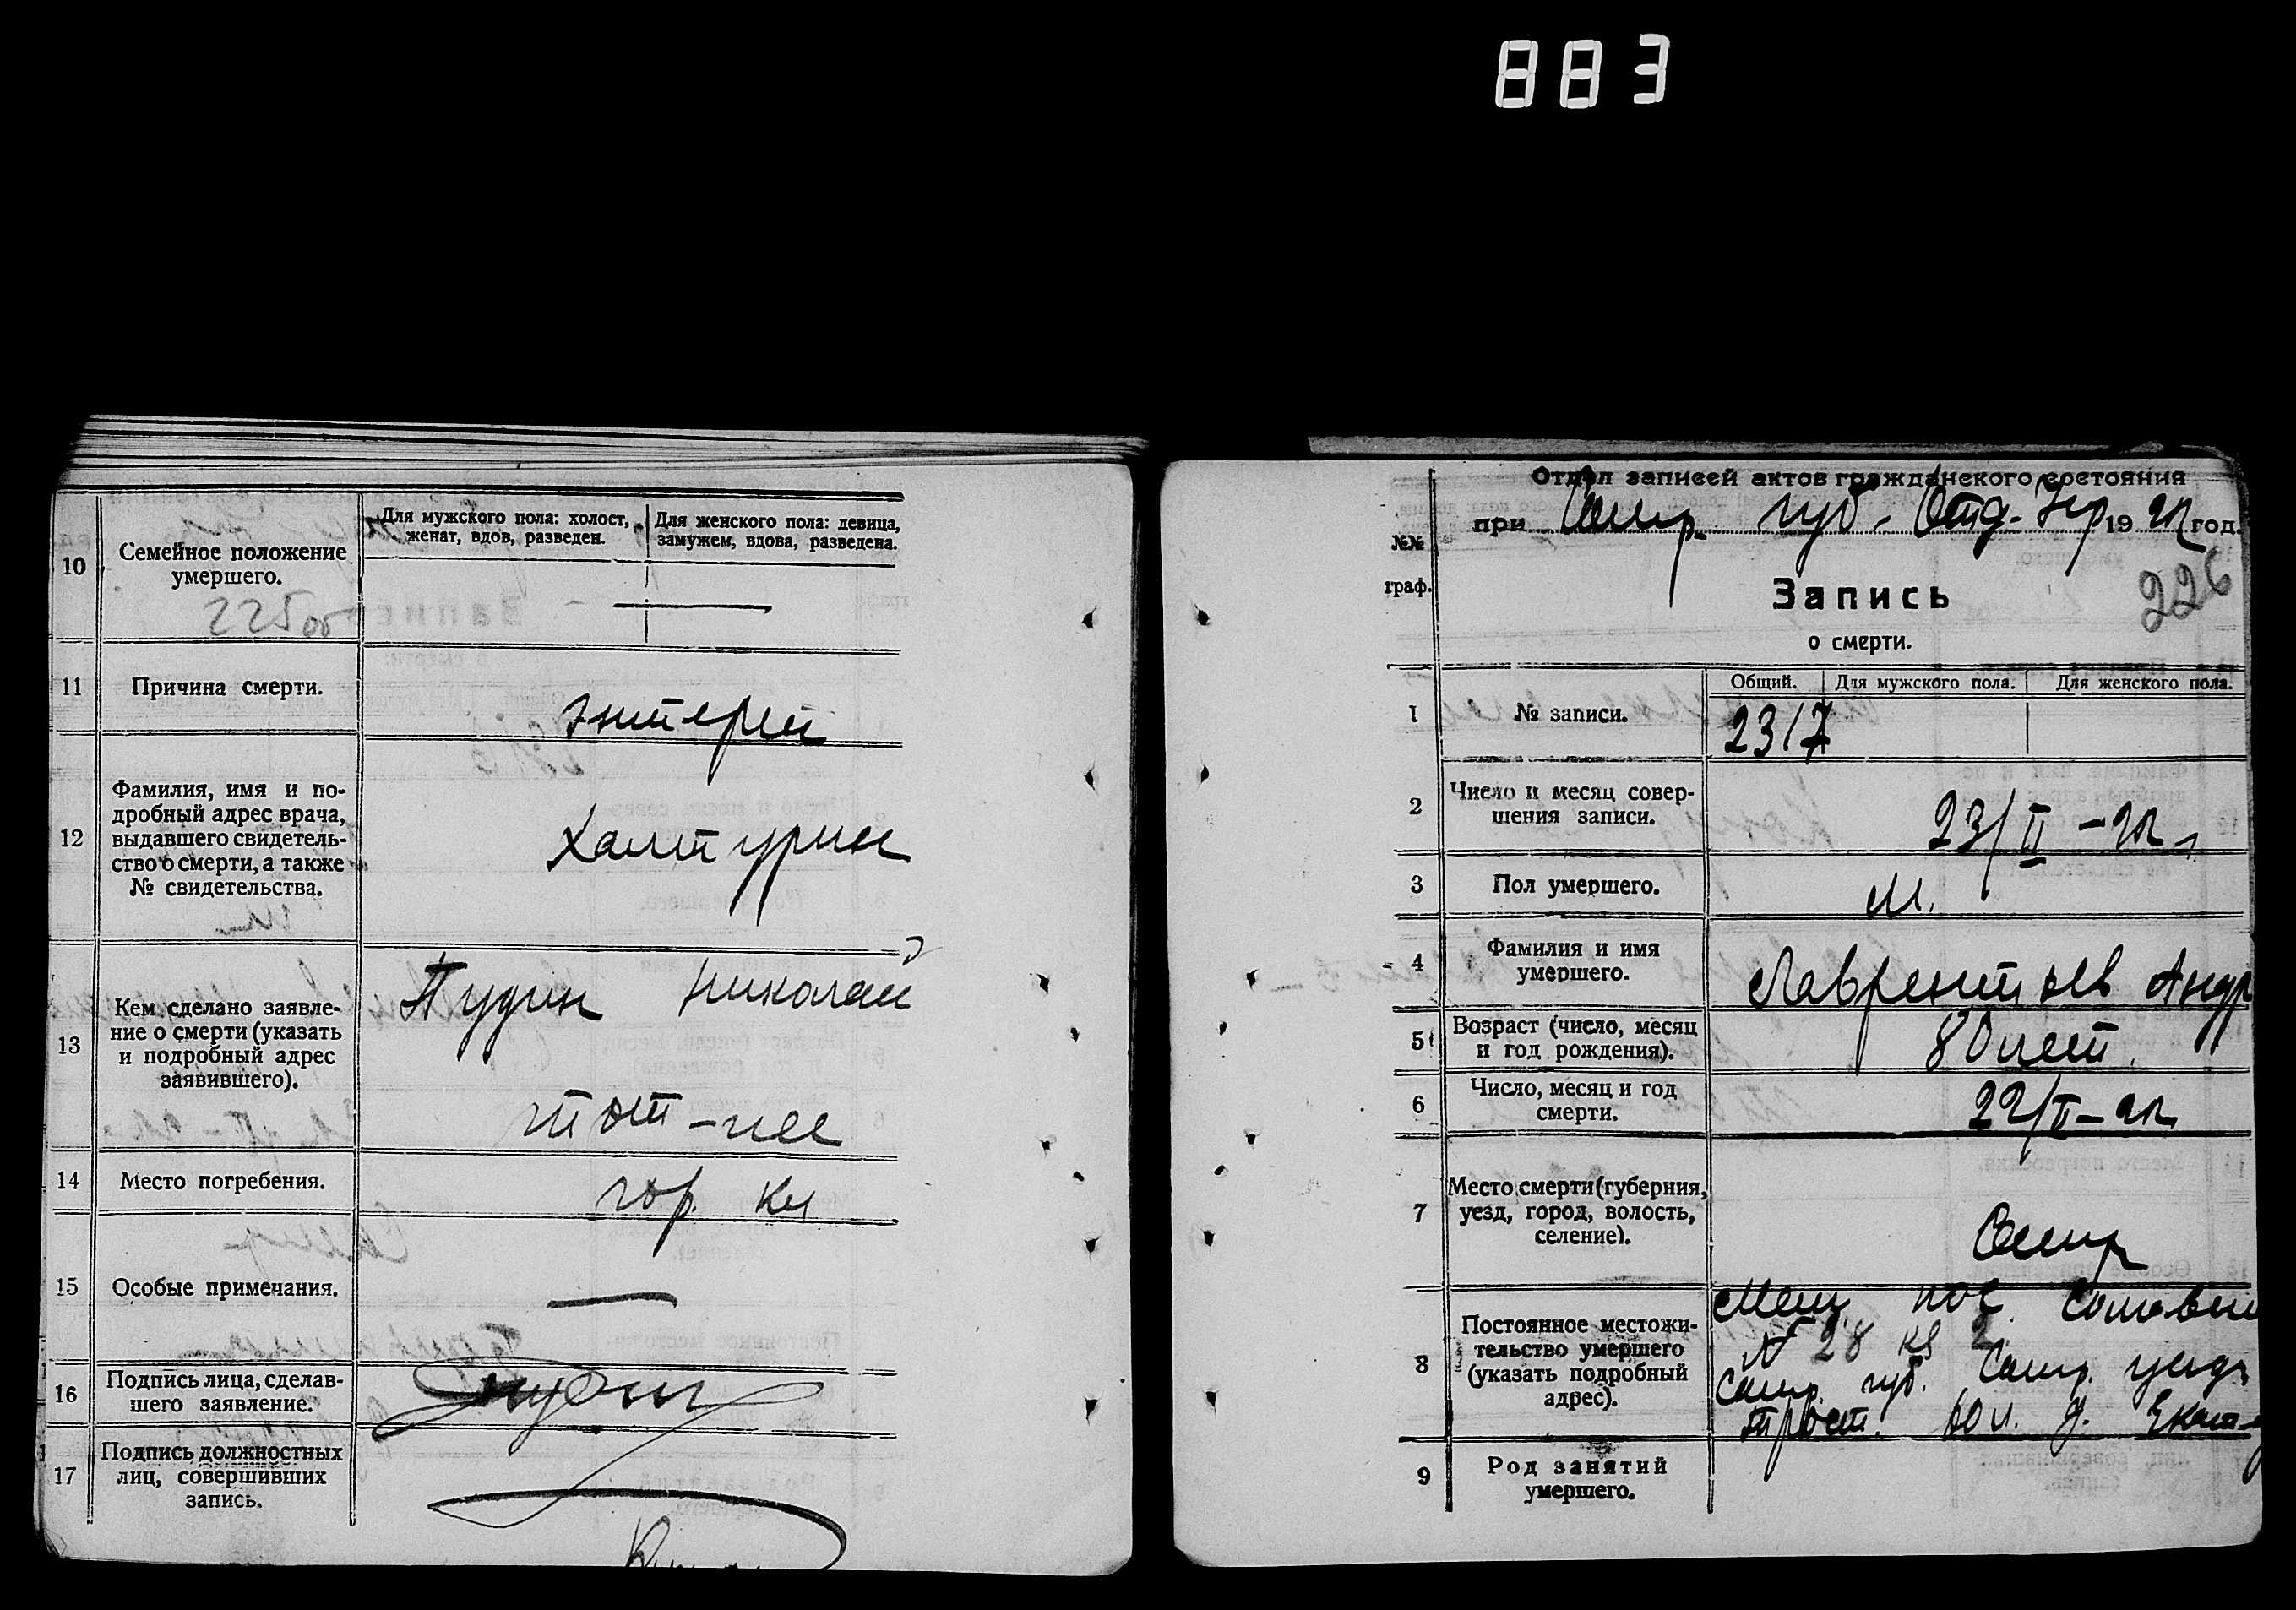 883
10
Семейное положение
умершего.
Для мужского пола: холост,
женат, вдов, разведен.
Для женского пола: девица,
замужем, вдова, разведена.
225об
11
Причина смерти.
энтерит
12
Фамилия, имя и по-
дробный адрес врача,
выдавшего свидетель-
ство о смерти, а также
№ свидетельства.
Халтурин
13
Кем сделано заявле-
ние о смерти (указать
и подробный адрес
заявившего).
Пудин Николай
тот-же
14
Место погребения.
гор. кл
15
Особые примечания.
16
Подпись лица, сделав-
шего заявление.
17
Подпись должностных
лиц, совершивших
запись.
Отдел записей актов гражданского состояния
при Самр. губ. Отд. 1922 год.
№№
граф.
Запись
о смерти.
226
Общий.
Для мужского пола.
Для женского пола.
1
№ записи.
2317
2
Число и месяц совер-
шения записи.
23/II-22
3
Пол умершего.
М.
4
Фамилия и имя
умершего.
Лаврентьев Андр
5
Возраст (число, месяц
и год рождения).
80 лет.
6
Число, месяц и год
смерти.
22/II-22
7
Место смерти (губерния,
уезд, город, волость,
селение).
Самр
8
Постоянное местожи-
тельство умершего
(указать подробный
адрес).
N 28 кв 2.
Самр. губ. Самр. уезд
вол. д. Екат
9
Род занятий
умершего.